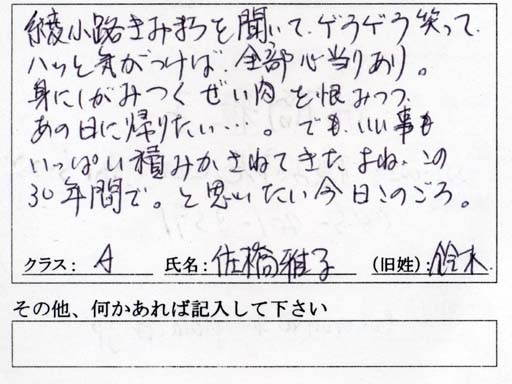 綾小路きみまろを聞いて、ゲラゲラ笑って、
ハッと気がつけば、全部心当りあり。
身にしがみつくぜい肉を恨みつつ、
あの日に帰りたい…。でも、いい事も
いっぱい積みかさねてきたよね、この
30年間で。と思いたい今日このごろ。
クラス: A 氏名: 佐橋雅子 (旧姓): 鈴木
その他、何かあれば記入して下さい